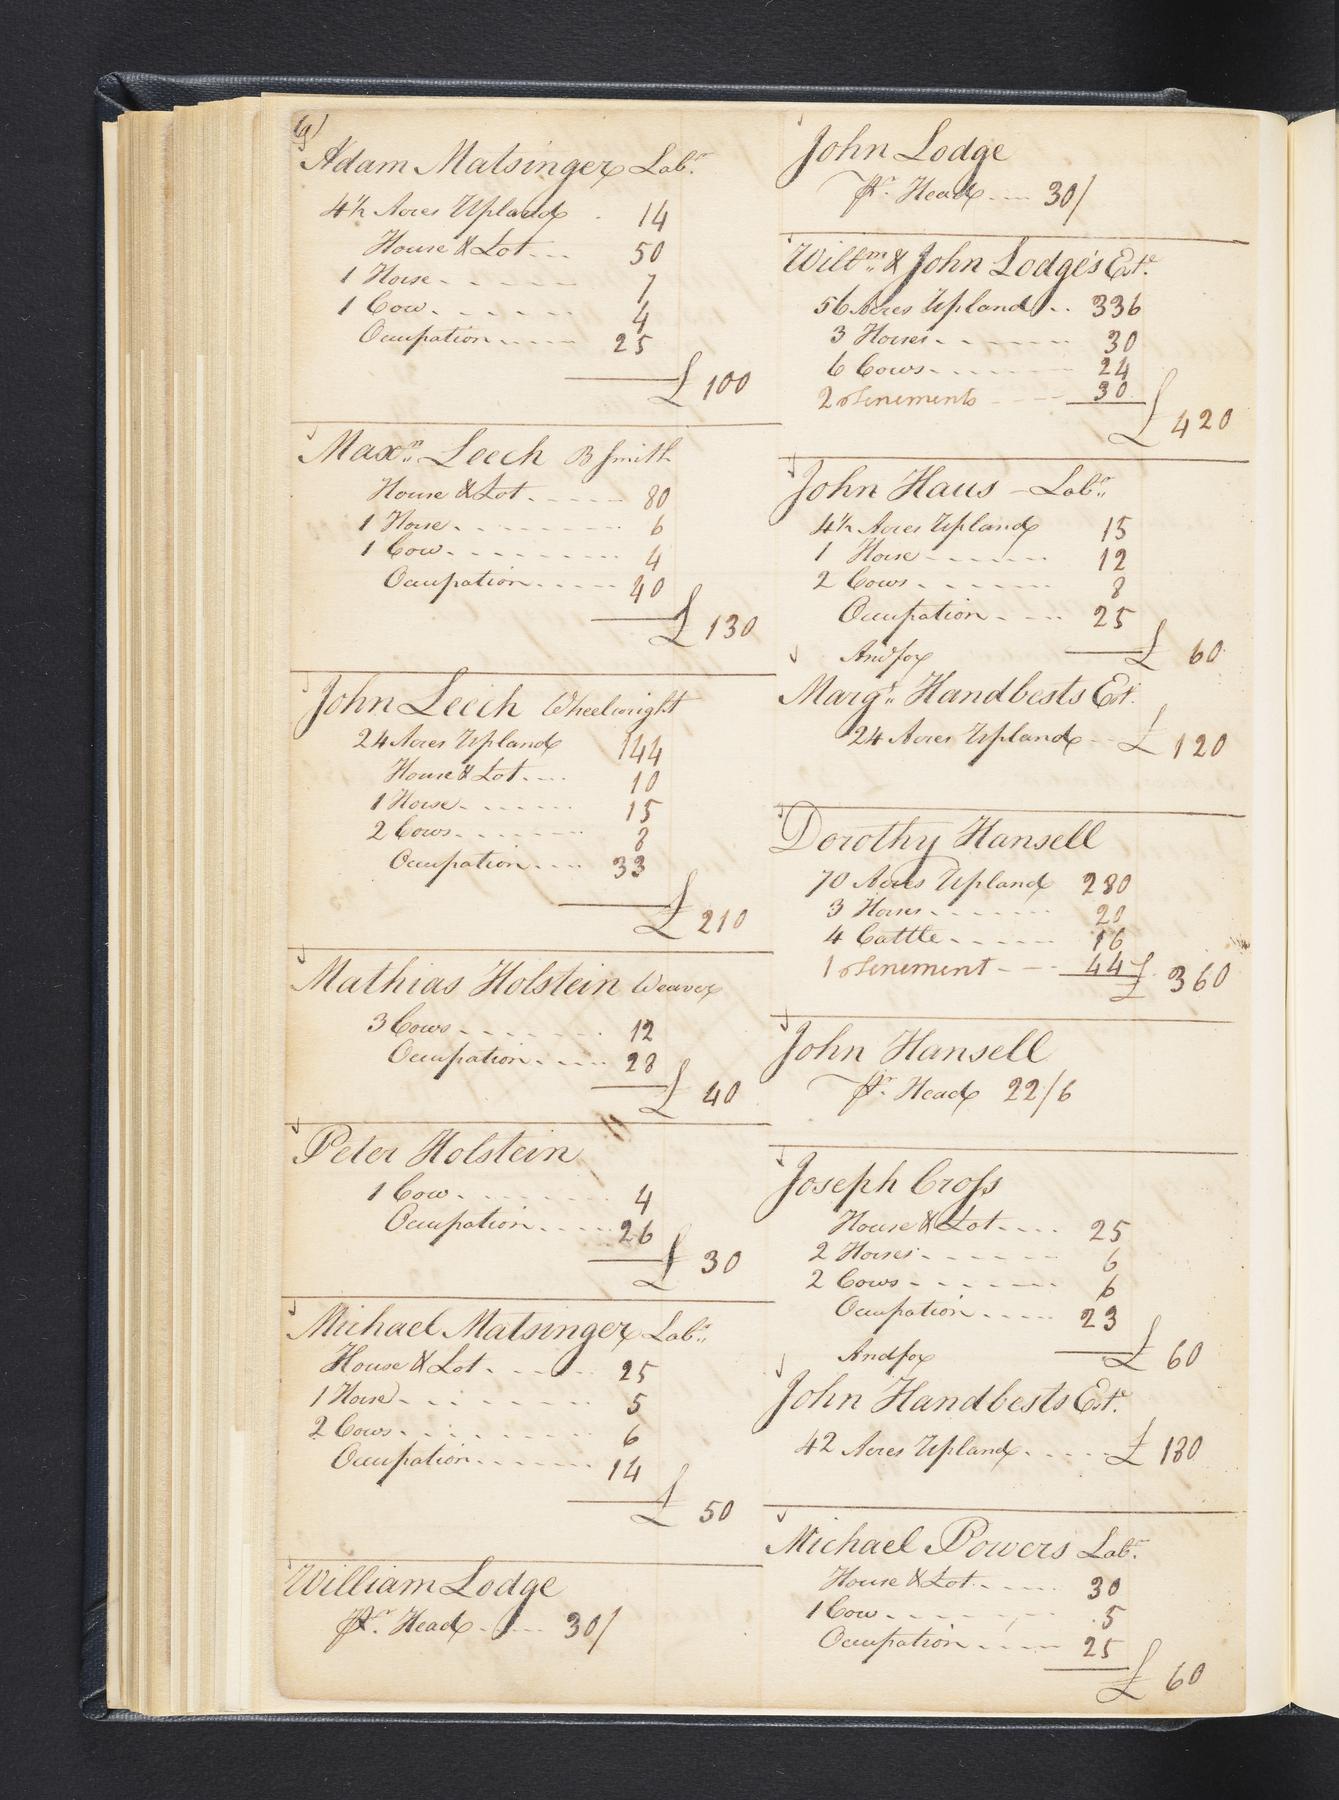 Adam Matsinger Labr.
4½ Acres Upland . 14
House & Lot... 50
1 Horse....... 7
1 Cow....... 4
Occupation..... 25
£ 100
Maxn. Leech B Smith
House & Lot..... 80
1 Horse........ 6
1 Cow......... 4
Occupation..... 40
£ 130
John Leech Wheelwright
24 Acres Upland 144
House & Lot.... 10
1 Horse....... 15
2 Cows....... 8
Occupation.... 33
£ 210
Mathias Holstein Weaver
3 Cows........ 12
Occupation..... 28
£ 40
Peter Holstein
1 Cow........ 4
Occupation..... 26
£ 30
Michael Matsinger Labr.
House & Lot...... 25
1 Horse......... 5
2 Cows......... 6
Occupation....... 14
£ 50
William Lodge
Pr. Head..... 30/
John Lodge
Pr. Head.... 30/
Willm. & John Lodge's Este.
56 Acres Upland.. 336
3 Horses....... 30
6 Cows....... 24
2 Tenements ---- 30
£ 420
John Haus - Labr.
4½ Acres Upland 15
1 Horse...... 12
2 Cows...... 8
Occupation.... 25
£ 60
And for
Margt. Handbests Est.
24 Acres Upland... £ 120
Dorothy Hansell
70 Acres Upland 280
3 Horses...... 20
4 Cattle..... 16
1 Tenement --- 44
£ 360
John Hansell
Pr. Head 22/6
Joseph Cross
House & Lot.... 25
2 Horses...... 6
2 Cows...... 6
Occupation..... 23
£ 60
And for
John Handbests Este.
42 Acres Upland..... £ 180
Michael Powers Labr.
House & Lot..... 30
1 Cow........ 5
Occupation..... 25
£ 60